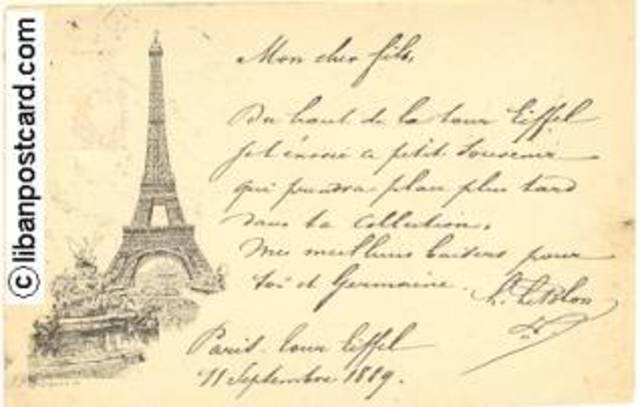 © libanpostcard.com
Mon cher fils,
Du haut de la tour Eiffel
je t'envoie ce petit souvenir
qui prendra place plus tard
dans ta collection.
Mes meilleurs baisers pour
toi et Germaine. LeBlon
Paris-tour Eiffel
11 Septembre 1889.